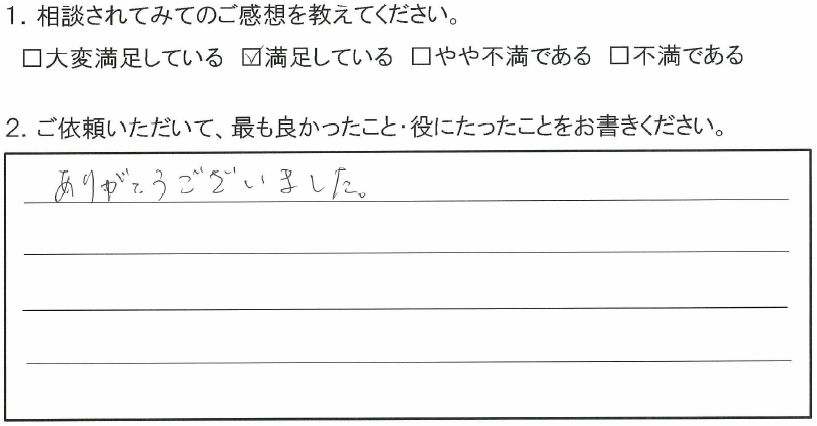 1．相談されてみてのご感想を教えてください。
□大変満足している ☑満足している □やや不満である □不満である
2．ご依頼いただいて、最も良かったこと・役にたったことをお書きください。
ありがとうございました。